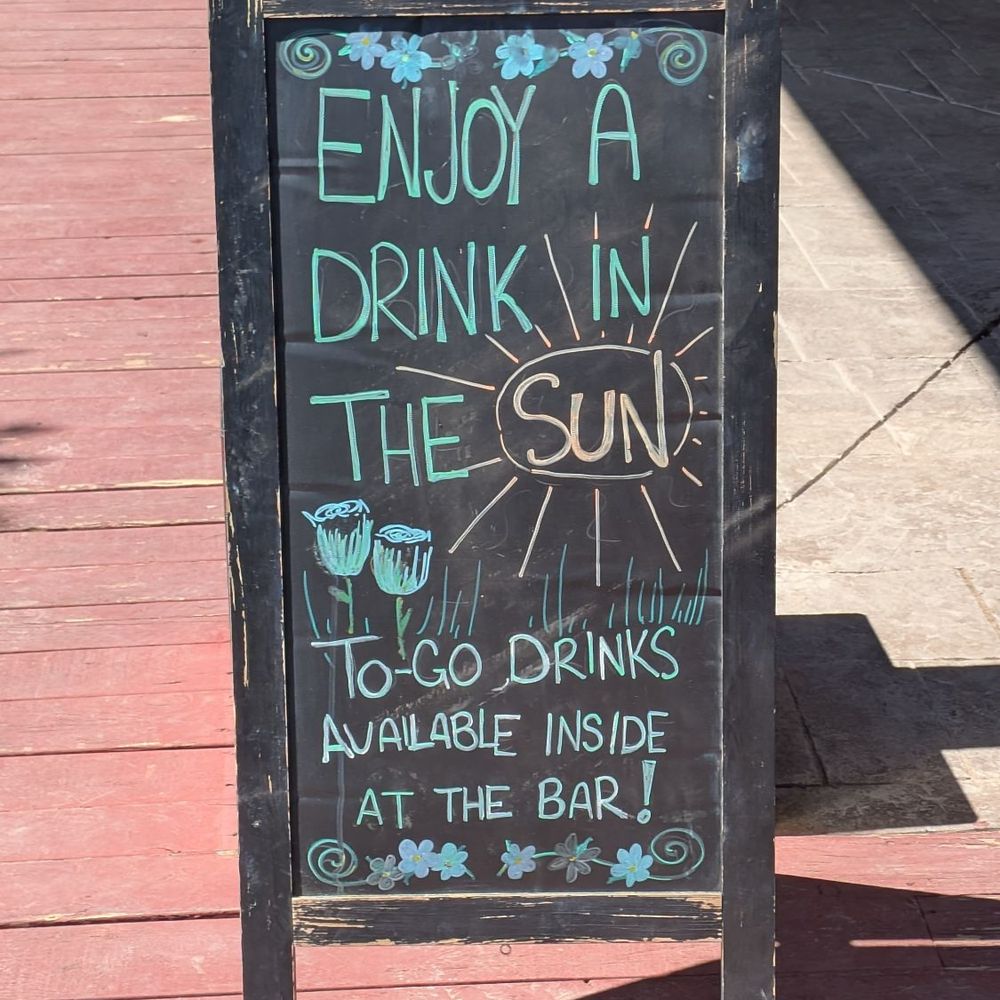 ENJOY A
DRINK IN
THE SUN
TO-GO DRINKS
AVAILABLE INSIDE
AT THE BAR!